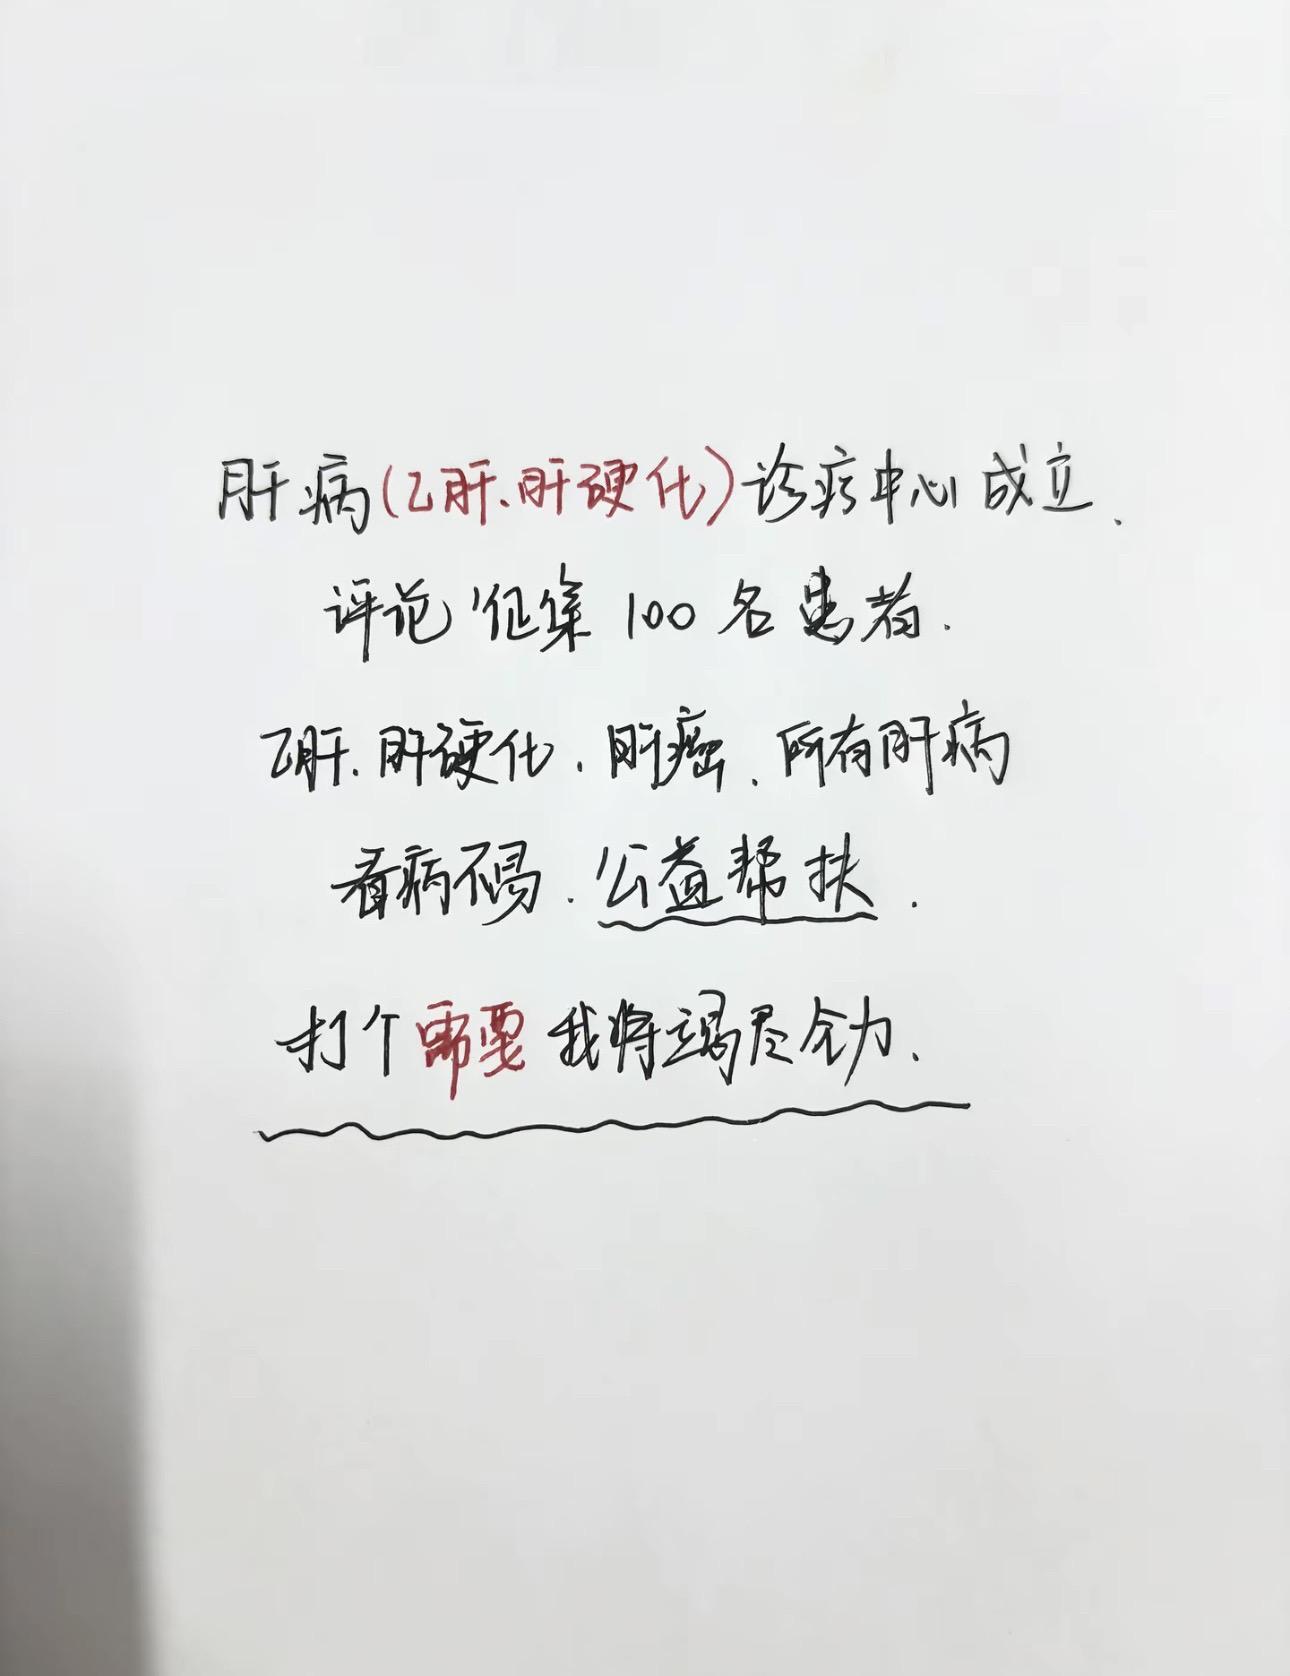 肝病(乙肝、肝硬化)诊疗中心成立.
评论征集100名患者.
乙肝、肝硬化、肝癌、所有肝病
看病不易.公益帮扶.
打个需要我将竭尽全力、